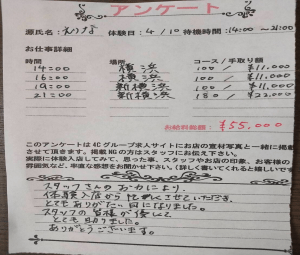 アンケート
源氏名: 体験日: 4 / 10 待機時間: 14:00 〜 21:00
お仕事詳細
時間 場所 コース / 手取り額
14:00 横浜 100 / ¥11,000
16:00 横浜 100 / ¥11,000
19:00 新横浜 100 / ¥11,000
21:00 新横浜 180 / ¥22,000
お給料総額: ¥55,000
このアンケートは4Cグループ求人サイトにお店の直材写真と一緒に掲載
させて頂きます。掲載NGの方はスタッフにお伝え下さい。
実際に体験入店してみて、思った事、スタッフやお店の印象、お客様の
雰囲気など、率直な感想をお聞かせ下さい。(詳しく書いてくれると嬉しいです
スタッフさんのお力により、
体験入店から忙しくさせていただき、
とてもありがたい日になりました。
スタッフの皆様が優しくて
とても助かりました。
ありがとうございます。